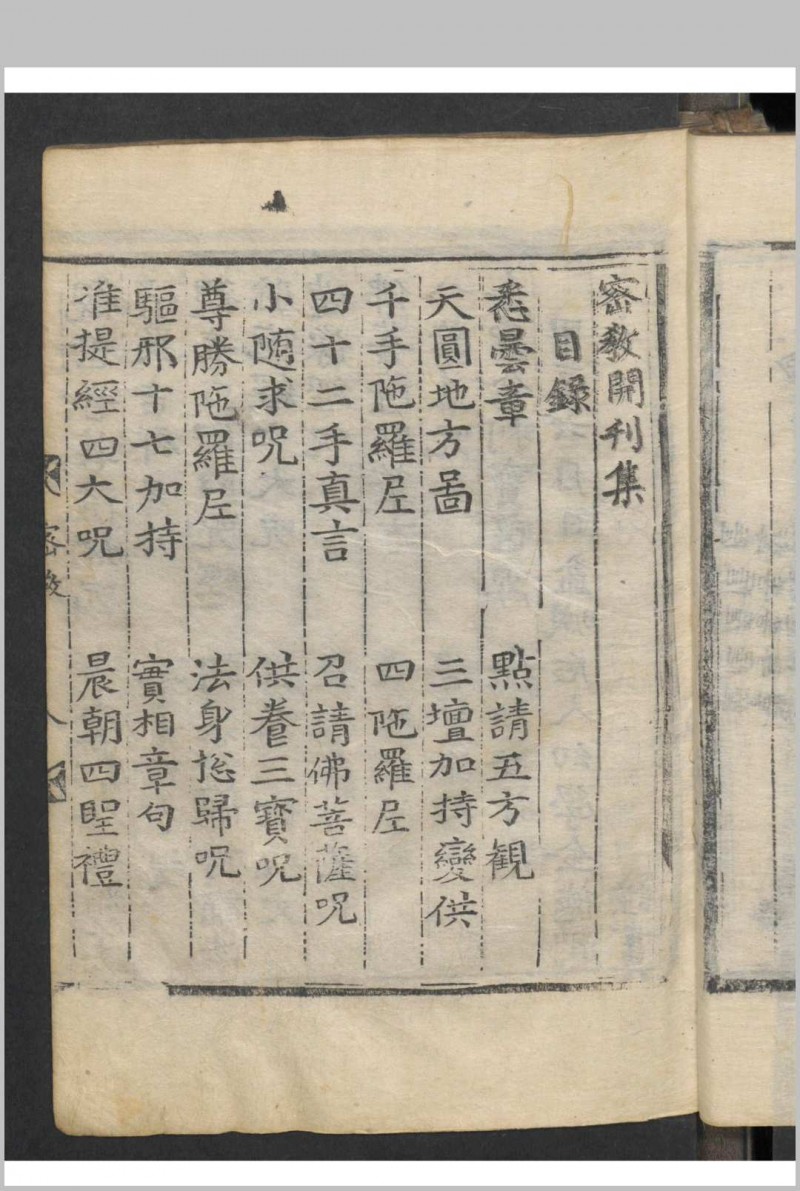 密教開刊集
目録
悉曇章　點請五方觀
天圓地方啚　三壇加持變供
千手陁羅尼　四陁羅尼
四十二手真言　召請佛菩薩呪
小随求呪　供養三寶呪
尊勝陁羅尼　法身㧾歸呪
驅邪十七加持　實相章句
准提經四大呪　晨朝四聖禮
密教